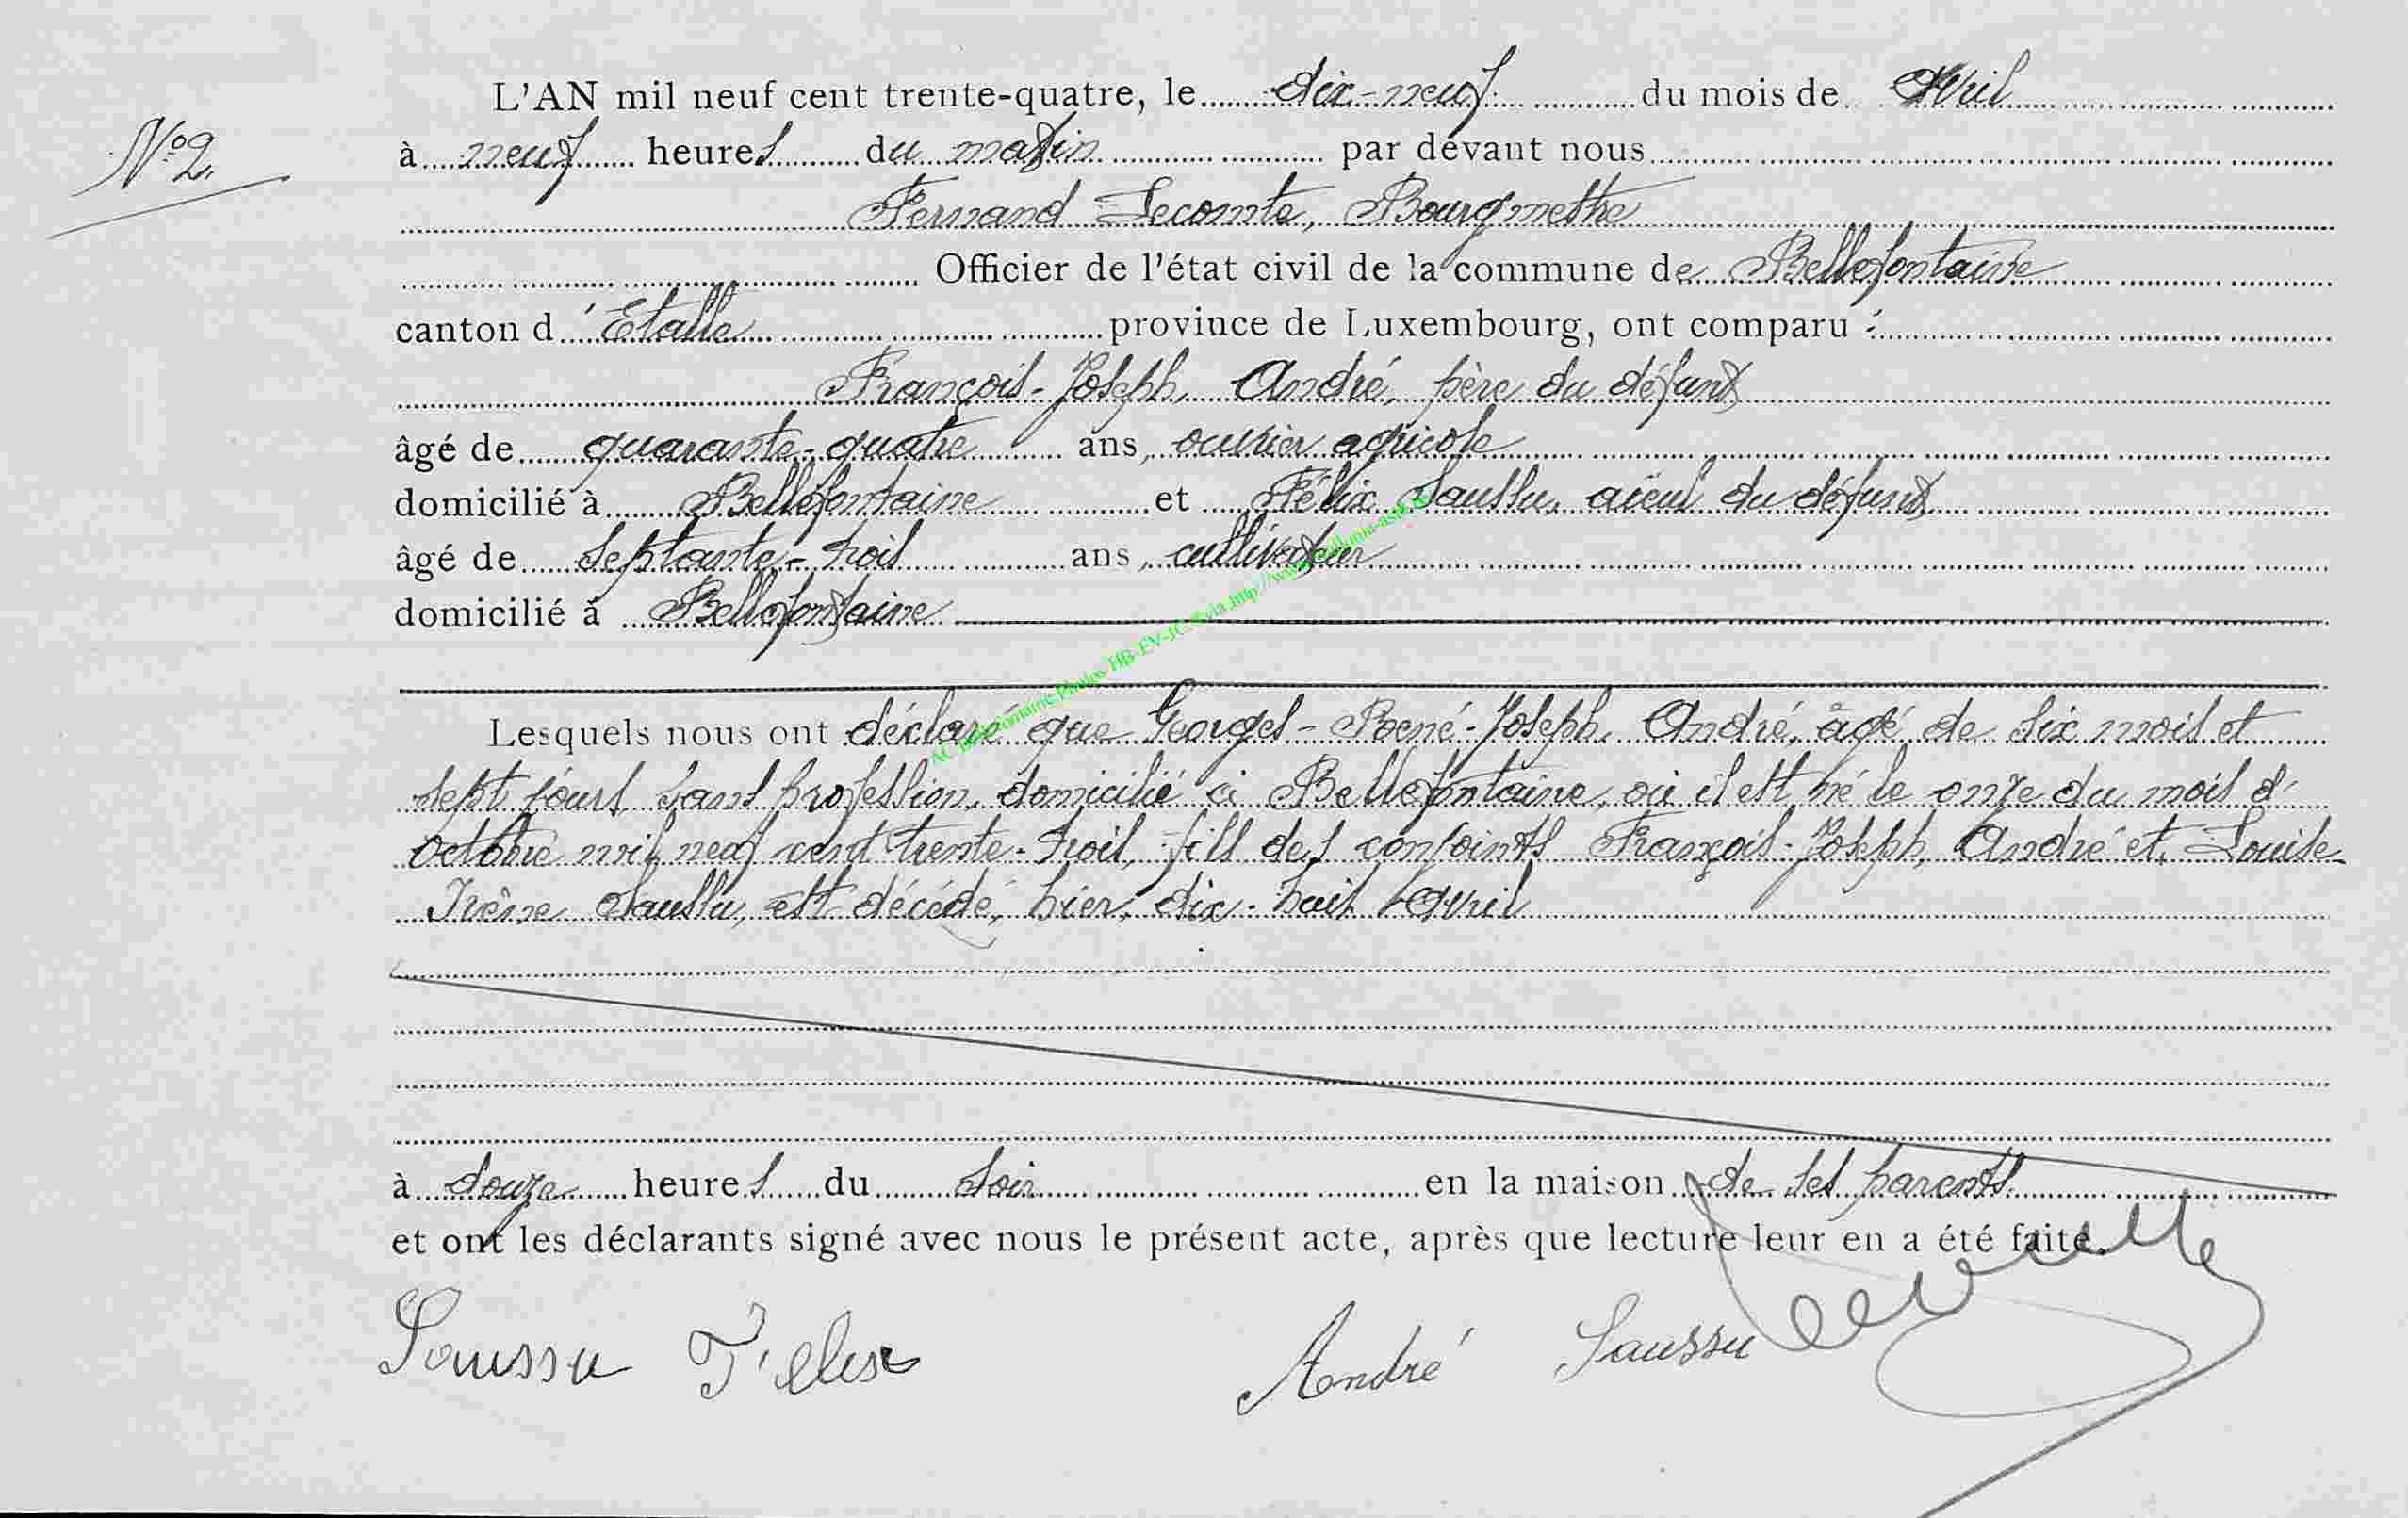 L'AN mil neuf cent trente-quatre, le dix-neuf du mois de Avril
N° 2.
à neuf heures du matin par devant nous
Fernand Lecomte, Bourgmestre
Officier de l'état civil de la commune de Bellefontaine
canton d'Etalle province de Luxembourg, ont comparu :
François-Joseph, André, père du défunt
âgé de quarante-quatre ans, ouvrier agricole
domicilié à Bellefontaine et Félix Saussu, aïeul du défunt
âgé de septante-trois ans, cultivateur
domicilié à Bellefontaine
Lesquels nous ont déclaré que Georges-René-Joseph, André, âgé de six mois et
sept jours sans profession, domicilié à Bellefontaine, où il est né le onze du mois d'
octobre mil neuf cent trente-trois, fils des conjoints François-Joseph, André et, Louise-
Irène Saussu, est décédé, hier, dix-huit Avril
à douze heures du soir en la maison de ses parents
et ont les déclarants signé avec nous le présent acte, après que lecture leur en a été faite.
Saussu Félix André Saussu